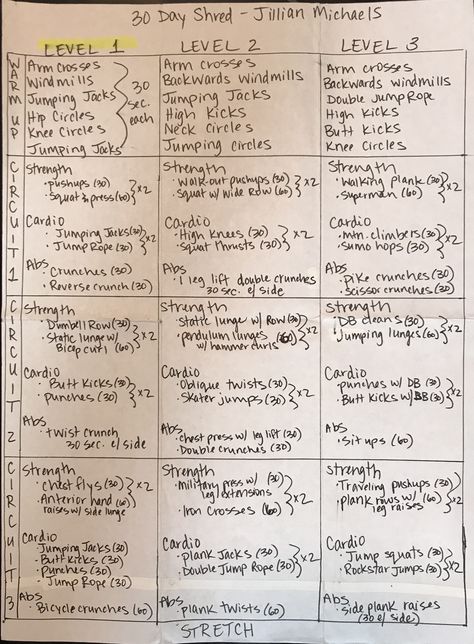 30 Day Shred - Jillian Michaels
LEVEL 1
LEVEL 2
LEVEL 3
WARM UP
Arm Crosses
Windmills
Jumping Jacks
Hip Circles
Knee Circles
Jumping Jacks
30 sec. each
Arm crosses
Backwards windmills
Jumping Jacks
High Kicks
Neck Circles
Jumping circles
Arm crosses
Backwards windmills
Double Jump Rope
High Kicks
Butt Kicks
Knee Circles
CIRCUIT 1
Strength
· pushups (30)
· Squat & press (60)
x2
Cardio
· Jumping Jacks (30)
· Jump Rope (30)
x2
Abs
· Crunches (30)
· Reverse crunch (30)
Strength
· Walk-out pushups (30)
· Squat w/ wide Row (60)
x2
Cardio
· High Knees (30)
· squat thrusts (30)
x2
Abs
· 1 leg lift double crunches
30 sec. e/ side
Strength
· Walking plank (30)
· superman (60)
x2
Cardio
· mtn. climbers (30)
· sumo hops (30)
x2
Abs
· Pike crunches (30)
· scissor crunches (30)
CIRCUIT 2
Strength
· Dumbell Row (30)
· Static lunge w/
Bicep curl (60)
x2
Cardio
· Butt Kicks (30)
· punches (30)
x2
Abs
· twist crunch
30 sec. e/ side
Strength
· static lunge w/ Row (30)
· pendulum lunges (60)
w/ hammer curls
x2
Cardio
· Oblique twists (30)
· Skater jumps (30)
x2
Abs
· chest press w/ leg lift (30)
· Double crunches (30)
Strength
· DB cleans (30)
· Jumping lunges (60)
x2
Cardio
· punches w/ DB (30)
· Butt Kicks w/ DB (30)
x2
Abs
· Sit ups (60)
CIRCUIT 3
Strength
· chest flys (30)
· Anterior hand (60)
raises w/ side lunge
x2
Cardio
· Jumping Jacks (30)
· Butt Kicks (30)
· Punches (30)
· Jump Rope (30)
Abs
· Bicycle crunches (60)
Strength
· military press w/ (30)
leg extensions
· Iron Crosses (60)
x2
Cardio
· plank Jacks (30)
· Double Jump Rope (30)
x2
Abs
· plank twists (60)
Strength
· Traveling pushups (30)
· plank rows w/ (60)
leg raises
x2
Cardio
· Jump squats (30)
· Rockstar Jumps (30)
x2
Abs
· side plank raises
(30 e/ side)
STRETCH